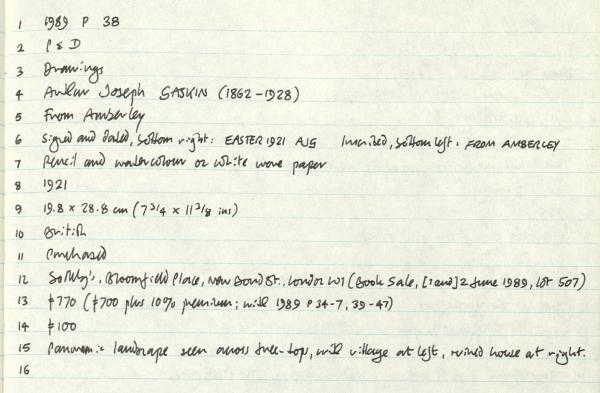 1 1989 P 38
2 P & D
3 Drawings
4 Arthur Joseph GASKIN (1862-1928)
5 From Amberley
6 Signed and dated, bottom right: EASTER 1921 AJG Inscribed, bottom left: FROM AMBERLEY
7 Pencil and watercolour on white wove paper
8 1921
9 19.8 x 28.8 cm (7 3/4 x 11 3/8 ins)
10 British
11 Purchased
12 Sotheby's, Bloomfield Place, New Bond St., London W1 (Book Sale, [1 and] 2 June 1989, lot 507)
13 £770 (£700 plus 10% premium; with 1989 P 34-7, 39-47)
14 £100
15 Panoramic landscape seen across tree-tops, with village at left, ruined house at right.
16